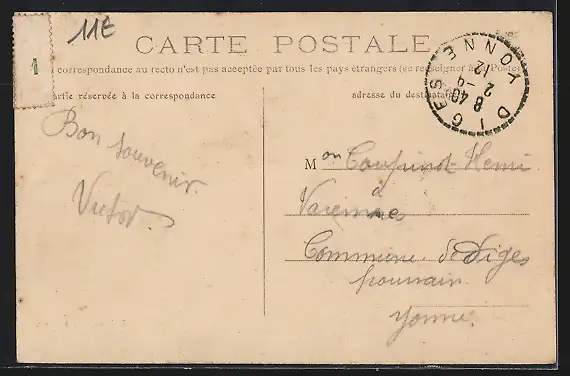 11E
1
CARTE POSTALE
correspondance au recto n'est pas acceptée par tous les pays étrangers (se renseigner à la Poste)
partie réservée à la correspondance
adresse du destinataire
DIGES YONNE
8 40
2 -9
12
Bon souvenir.
Victor.
Mon Henri
à
Varennes
Commune de Diges
pourrain
Yonne.